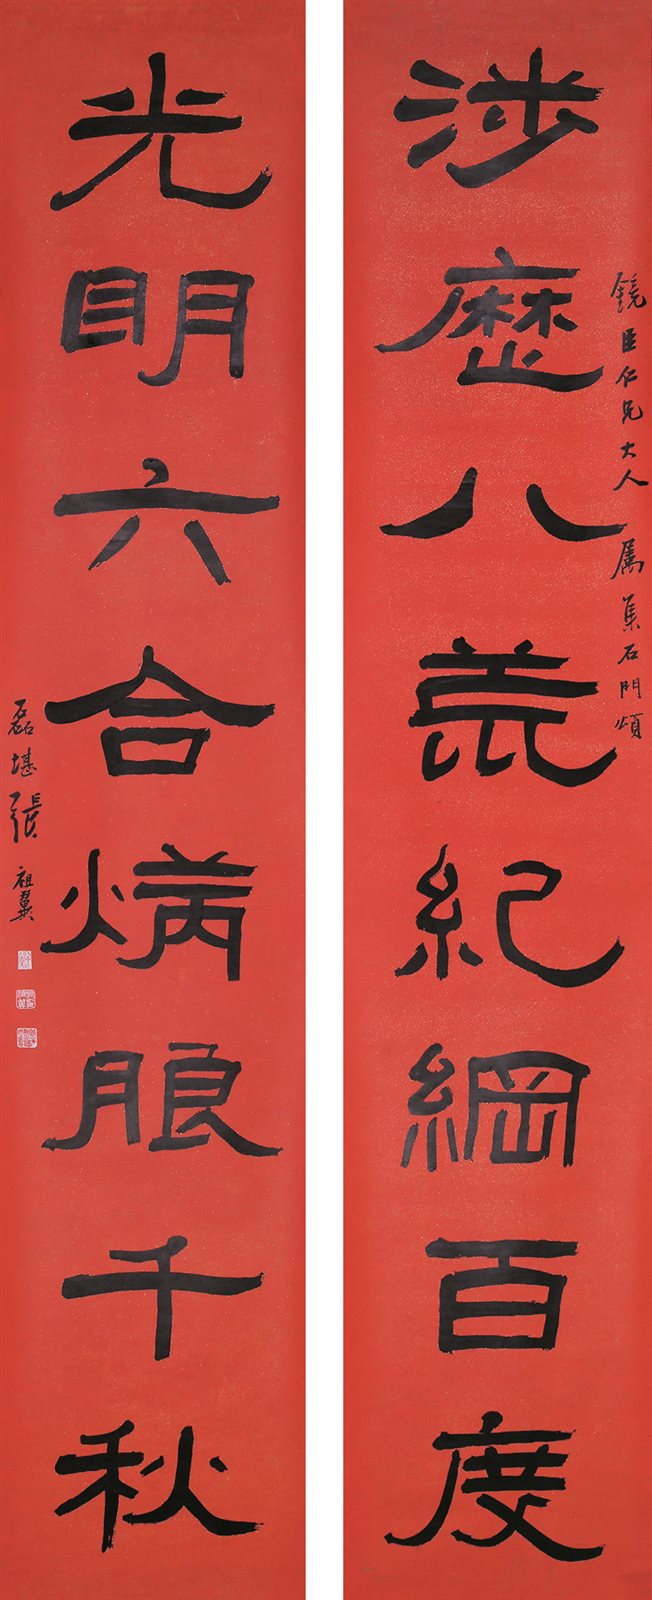 涉歷八荒紀綱百度
鏡臣仁兄大人 属集石門頌
光明六合炳朖千秋
磊堪張祖翼